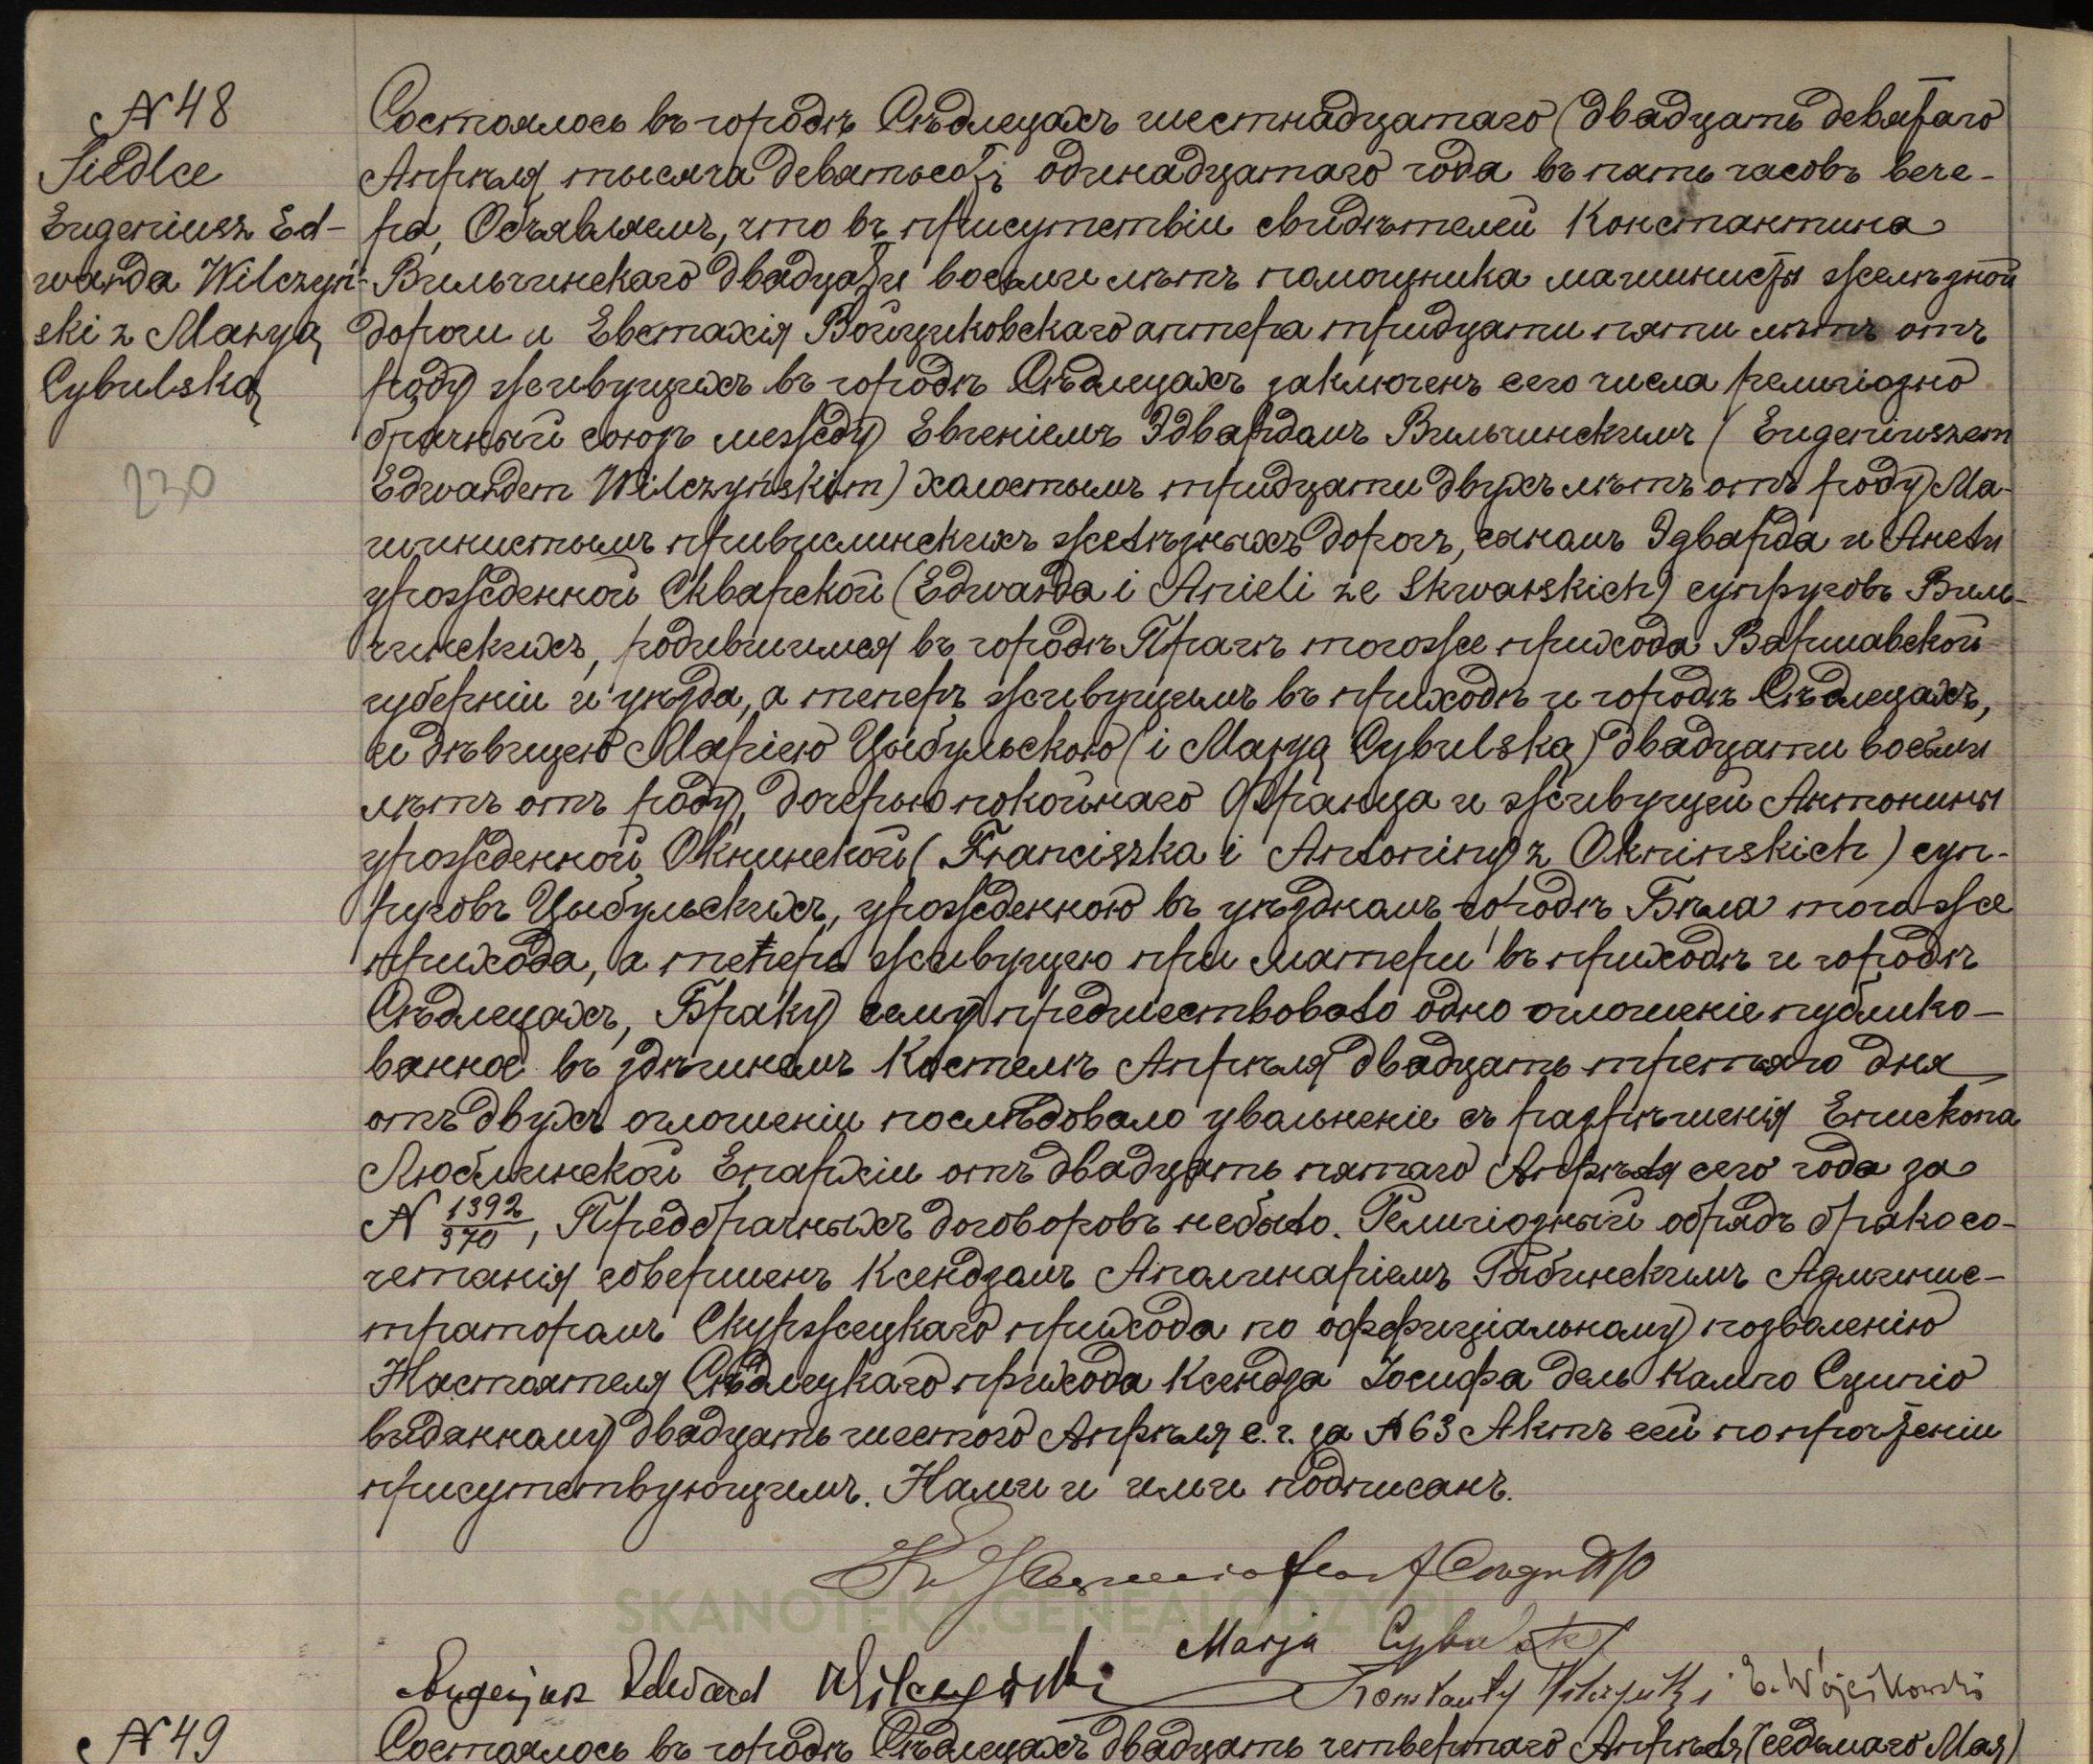 N 48
Siedlce
Eugeniusz Ed-
warda Wilczyń-
ski z Maryą
Cybulską
230
Состоялось въ городѣ Сѣдлецахъ шестнадцатаго (двадцать девятаго
Апрѣля тысяча девятьсотъ одинадцатаго года въ пять часовъ вече-
ра, Объявляемъ, что въ присутствіи свидѣтелей Константина
Вильчинскаго двадцати восьми лѣтъ помощника машинисты желѣзной
дороги и Евстахія Войциковскаго актера тридцати пяти лѣтъ отъ
роду живущихъ въ городѣ Сѣдлецахъ заключенъ сего числа религіозно
брачный союзъ между Евгеніемъ Эдвардомъ Вильчинскимъ (Eugeniuszem
Edwardem Wilczyńskim) холостымъ тридцати двухъ лѣтъ отъ роду Ма-
шинистымъ привислинскихъ желѣзныхъ дорогъ, сыномъ Эдварда и Анели
урожденной Скварской (Edwarda i Anieli ze Skwarskich) супруговъ Виль-
чинскихъ, родившимся въ городѣ Прагѣ тогоже прихода Варшавской
губерніи и уѣзда, а теперъ живущимъ въ приходѣ и городѣ Сѣдлецахъ,
и дѣвицею Маріею Цыбульскою (i Maryą Cybulską) двадцати восьми
лѣтъ отъ роду, дочерью покойнаго Франца и живущей Антонины
урожденной Окнинской (Franciszka i Antoniny z Okninskich) суп-
руговъ Цыбульскихъ, урожденною въ уѣздномъ городѣ Бѣла тогоже
прихода, а теперь живущею при матери въ приходѣ и городѣ
Сѣдлецахъ, Браку сему предшествовало одно оглошеніе публико-
ванное въ здѣшнемъ Костелѣ Апрѣля двадцать третьяго дня
отъ двухъ оглошеніи послѣдовало увольненіе съ разрѣшенія Епископа
Люблинской Епархіи отъ двадцать пятаго Апрѣля сего года за
N 1392/370, Предбрачныхъ договоровъ небыло. Религіозный обрядъ бракосо-
четанія совершенъ Ксендзомъ Аполинаріемъ Рыбинскимъ Админис-
траторомъ Скуржецкаго прихода по оффиціальному позволенію
Настоятеля Сѣдлецкаго прихода Ксендза Іосифа дель Кампо Сципіо
выданному двадцать шестого Апрѣля с. г. за N 63 Актъ сей по прочтеніи
присутствующимъ. Нами и ими подписанъ.
SKANOTEKA.GENEALODZY.PL
Marja Cybulska
Eugenjusz Edward Wilczyński
Konstanty Wilczyński E. Wojcikowski
N 49
Состоялось въ городѣ Сѣдлецахъ двадцать четвертаго Апрѣля (седьмаго Мая)